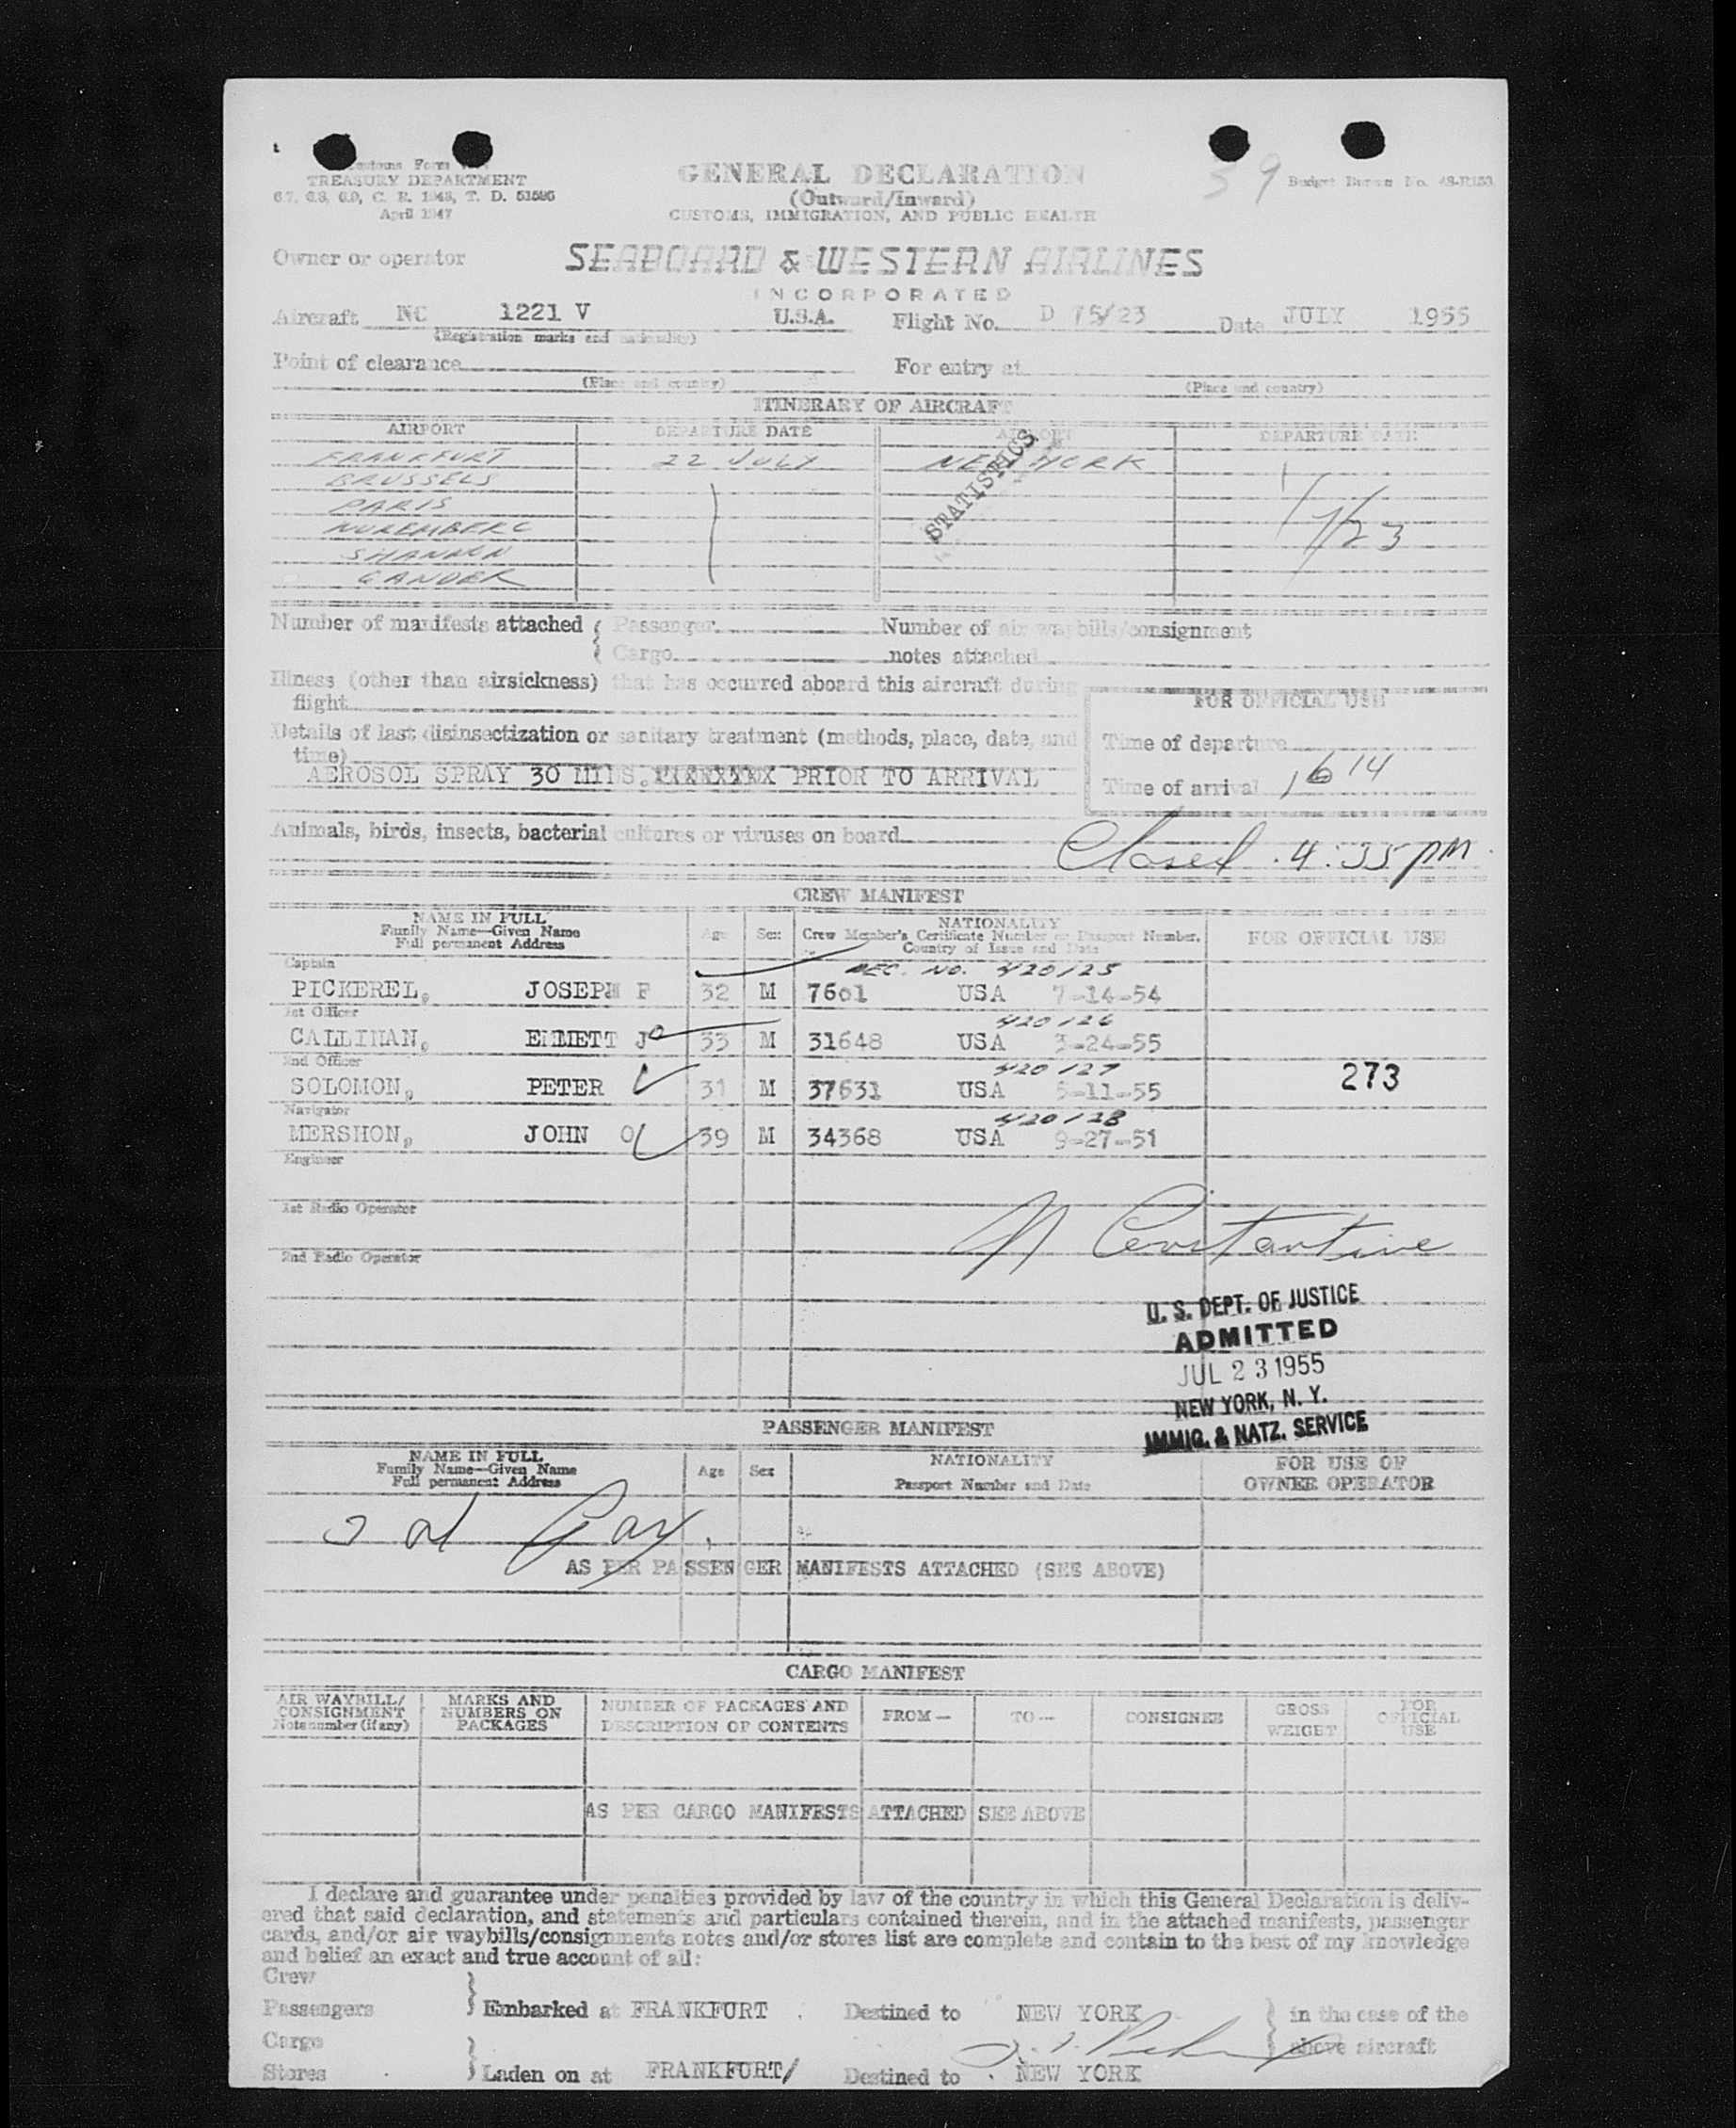 Customs Form
TREASURY DEPARTMENT
C. R. 1943, T. D. 51595
April 1947
GENERAL DECLARATION
(Outward/inward)
CUSTOMS, IMMIGRATION, AND PUBLIC HEALTH
39
Budget Bureau No.
Owner or operator SEABOARD & WESTERN AIRLINES
INCORPORATED
Aircraft NC 1221 V U.S.A. Flight No. D 75/23 Date JULY 1955
(Registration marks and nationality)
Point of clearance For entry at
(Place and country) (Place and country)
ITINERARY OF AIRCRAFT
AIRPORT DEPARTURE DATE AIRPORT DEPARTURE DATE
FRANKFURT 22 JULY NEW YORK
BRUSSELS
PARIS
NUREMBERG 7/23
SHANNON
GANDER
STATISTICS
Number of manifests attached { Passenger Number of air waybills/consignment
{ Cargo notes attached
Illness (other than airsickness) that has occurred aboard this aircraft during
flight
FOR OFFICIAL USE
Details of last disinsectization or sanitary treatment (methods, place, date, and
time)
Time of departure
AEROSOL SPRAY 30 MINS. PRIOR TO ARRIVAL
Time of arrival 1614
Animals, birds, insects, bacterial cultures or viruses on board
Closed. 4:35 pm.
CREW MANIFEST
NAME IN FULL
Family Name—Given Name
Full permanent Address
Age Sex
NATIONALITY
Crew Member's Certificate Number or Passport Number.
Country of Issue and Date
FOR OFFICIAL USE
Captain DEC. NO. 420125
PICKEREL, JOSEPH F 32 M 7601 USA 7-14-54
1st Officer 420126
CALLINAN, EMMETT J 33 M 31648 USA 3-24-55
2nd Officer 420127
SOLOMON, PETER 31 M 37631 USA 5-11-55 273
Navigator 420128
MERSHON, JOHN O 39 M 34368 USA 9-27-51
Engineer
1st Radio Operator
N Constantine
2nd Radio Operator
U. S. DEPT. OF JUSTICE
ADMITTED
JUL 23 1955
NEW YORK, N. Y.
IMMIG. & NATZ. SERVICE
PASSENGER MANIFEST
NAME IN FULL
Family Name—Given Name
Full permanent Address
Age Sex
NATIONALITY
Passport Number and Date
FOR USE OF
OWNER OPERATOR
AS PER PASSENGER MANIFESTS ATTACHED (SEE ABOVE)
CARGO MANIFEST
AIR WAYBILL/
CONSIGNMENT
Note number (if any)
MARKS AND
NUMBERS ON
PACKAGES
NUMBER OF PACKAGES AND
DESCRIPTION OF CONTENTS
FROM—
TO—
CONSIGNEE
GROSS
WEIGHT
FOR
OFFICIAL
USE
AS PER CARGO MANIFESTS ATTACHED SEE ABOVE
I declare and guarantee under penalties provided by law of the country in which this General Declaration is deliv-
ered that said declaration, and statements and particulars contained therein, and in the attached manifests, passenger
cards, and/or air waybills/consignments notes and/or stores list are complete and contain to the best of my knowledge
and belief an exact and true account of all:
Crew
Passengers } Embarked at FRANKFURT Destined to NEW YORK } in the case of the
Cargo above aircraft
Stores } Laden on at FRANKFURT/ Destined to NEW YORK